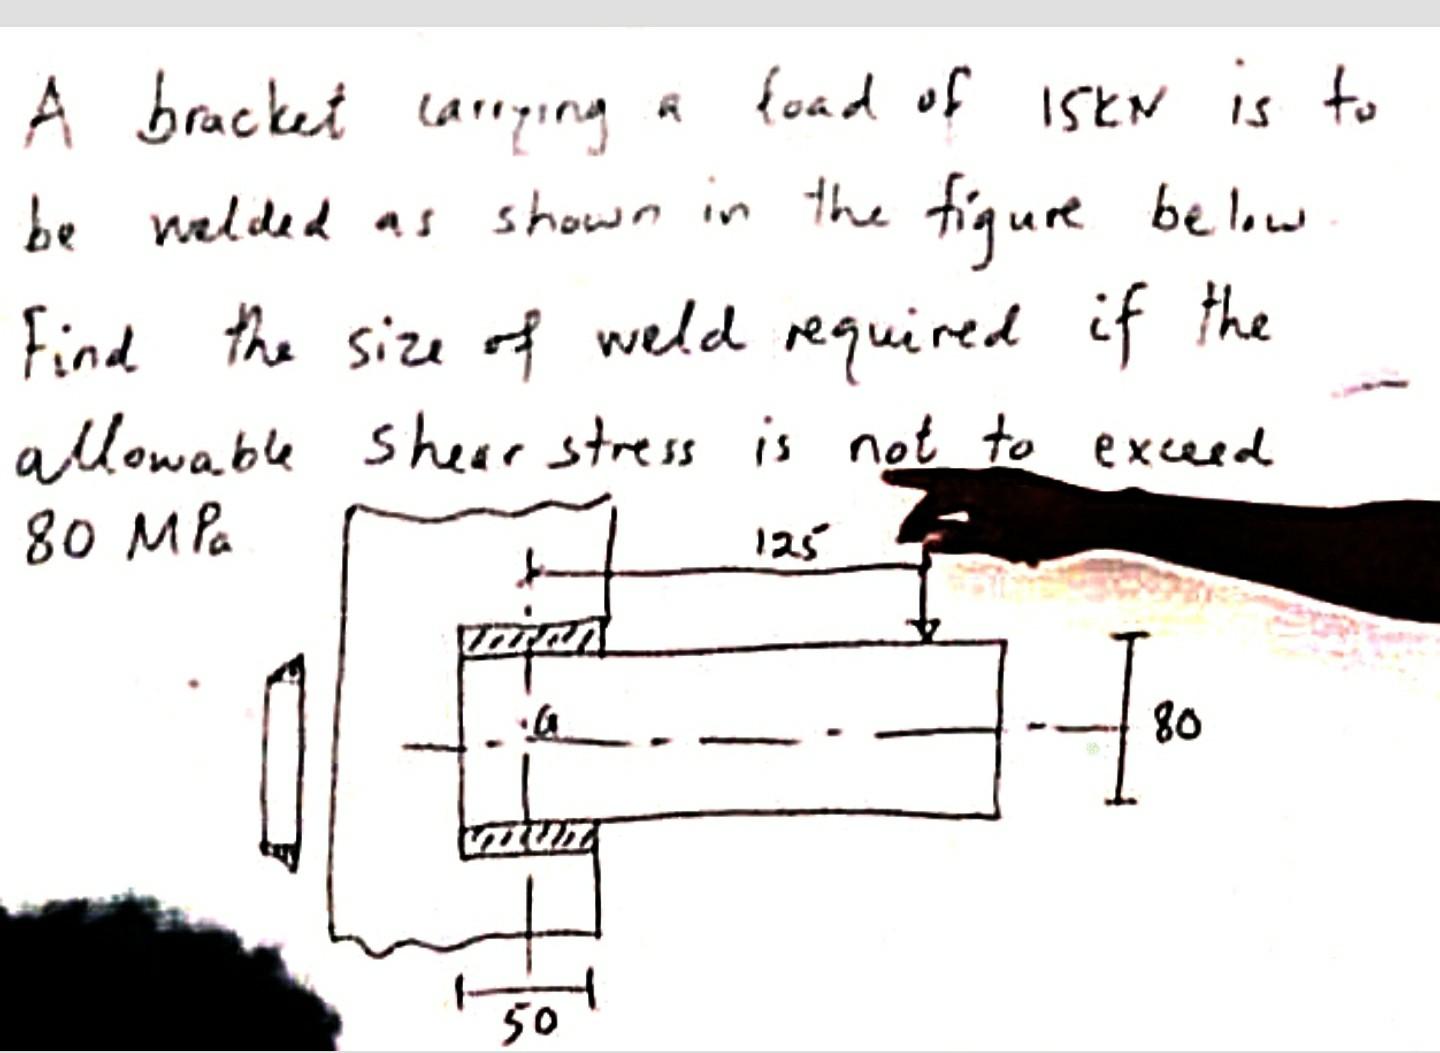 A bracket carrying a load of 15KN is to
be welded as shown in the figure below.
Find the size of weld required if the
allowable shear stress is not to exceed
80 MPa
125
G
80
50